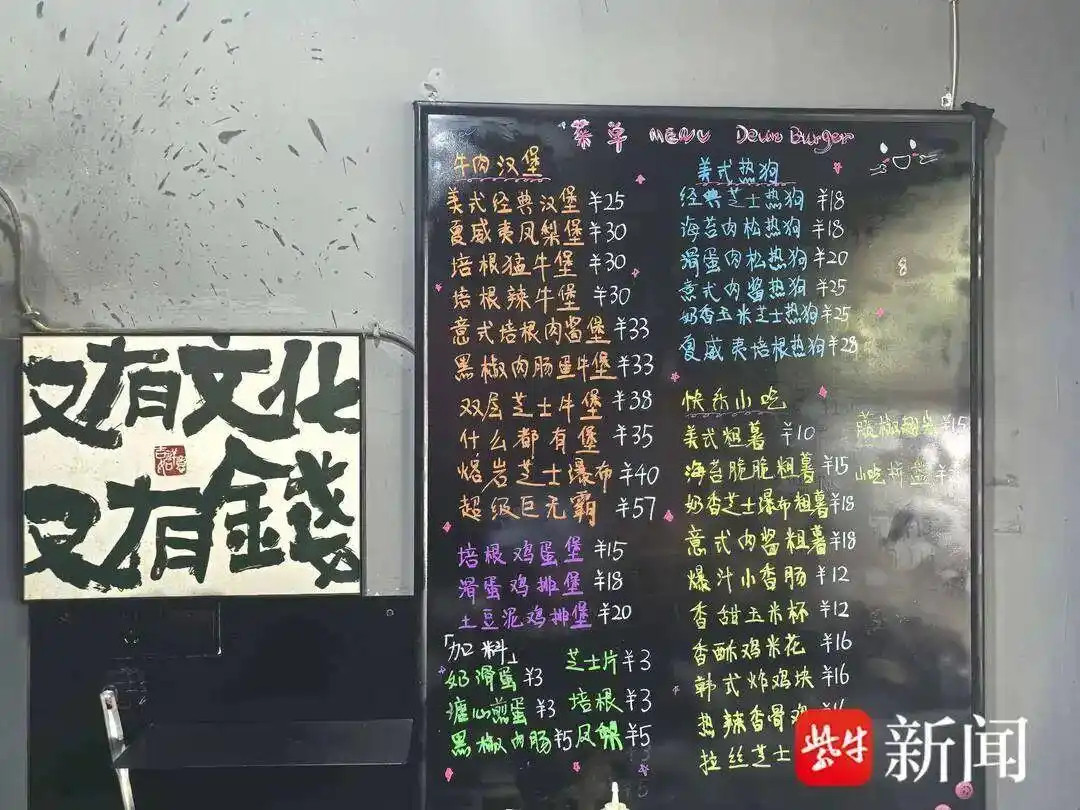 又有文化
又有錢
菜单 MENU Down Burger
牛肉汉堡
美式经典汉堡 ¥25
夏威夷凤梨堡 ¥30
培根猛牛堡 ¥30
培根辣牛堡 ¥30
意式培根肉酱堡 ¥33
黑椒肉肠蛋牛堡 ¥33
双层芝士牛堡 ¥38
什么都有堡 ¥35
熔岩芝士瀑布 ¥40
超级巨无霸 ¥57
培根鸡蛋堡 ¥15
滑蛋鸡排堡 ¥18
土豆泥鸡排堡 ¥20
「加料」
奶滑蛋 ¥3 芝士片 ¥3
溏心煎蛋 ¥3 培根 ¥3
黑椒肉肠 ¥5 凤梨 ¥5
美式热狗
经典芝士热狗 ¥18
海苔肉松热狗 ¥18
滑蛋肉松热狗 ¥20
意式肉酱热狗 ¥25
奶香玉米芝士热狗 ¥25
夏威夷培根热狗 ¥28
快乐小吃
美式粗薯 ¥10
海苔脆脆粗薯 ¥15
奶香芝士瀑布粗薯 ¥18
意式肉酱粗薯 ¥18
爆汁小香肠 ¥12
香甜玉米杯 ¥12
香酥鸡米花 ¥16
韩式炸鸡块 ¥16
热辣香骨鸡
拉丝芝士
小吃拼盘
紫牛新闻